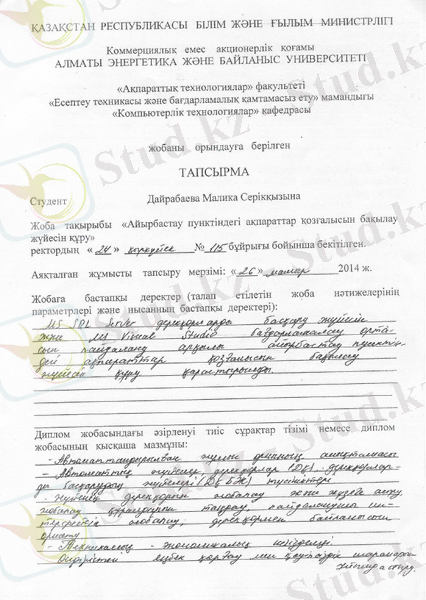 ҚАЗАҚСТАН РЕСПУБЛИКАСЫ БІЛІМ ЖӘНЕ ҒЫЛЫМ МИНИСТРЛІГІ
Коммерциялық емес акционерлік қоғамы
АЛМАТЫ ЭНЕРГЕТИКА ЖӘНЕ БАЙЛАНЫС УНИВЕРСИТЕТІ
«Ақпараттық технологиялар» факультеті
«Есептеу техникасы және бағдарламалық қамтамасыз ету» мамандығы
«Компьютерлік технологиялар» кафедрасы
жобаны орындауға берілген
ТАПСЫРМА
Студент Дайрабаева Малика Серікқызына
Жоба тақырыбы «Айырбастау пунктіндегі ақпараттар қозғалысын бақылау
жүйесін құру»
ректордың « 24 » қыркүйек № 115 бұйрығы бойынша бекітілген.
Аяқталған жұмысты тапсыру мерзімі: « 26 » мамыр 2014 ж.
Жобаға бастапқы деректер (талап етілетін жоба нәтижелерінің
параметрлері және нысанның бастапқы деректері):
MS SQL Server дерекқорларды басқару жүйесін
және MS Visual Studio бағдарламалау орта-
сын пайдалана арқылы айырбастау пунктін-
дегі ақпараттар қозғалысын бақылау
жүйесін құру қарастырылды.
Диплом жобасындағы әзірленуі тиіс сұрақтар тізімі немесе диплом
жобасының қысқаша мазмұны:
- Автоматтандырылған жүйе
- Автоматтық жүйенің деректер
басқарудың жүйелері (ДҚБЖ) түсініктері
- Жүйенің дерекқорын жобалау және жүзеге асыру,
жобалау құралдарын таңдау, пайдаланушы ин-
терфейсін жобалау, дерекқормен байланысын
орнату
- Техникалық - экономикалық негіздемесі
еңбек қорғау мен қауіпсіздік шаралары